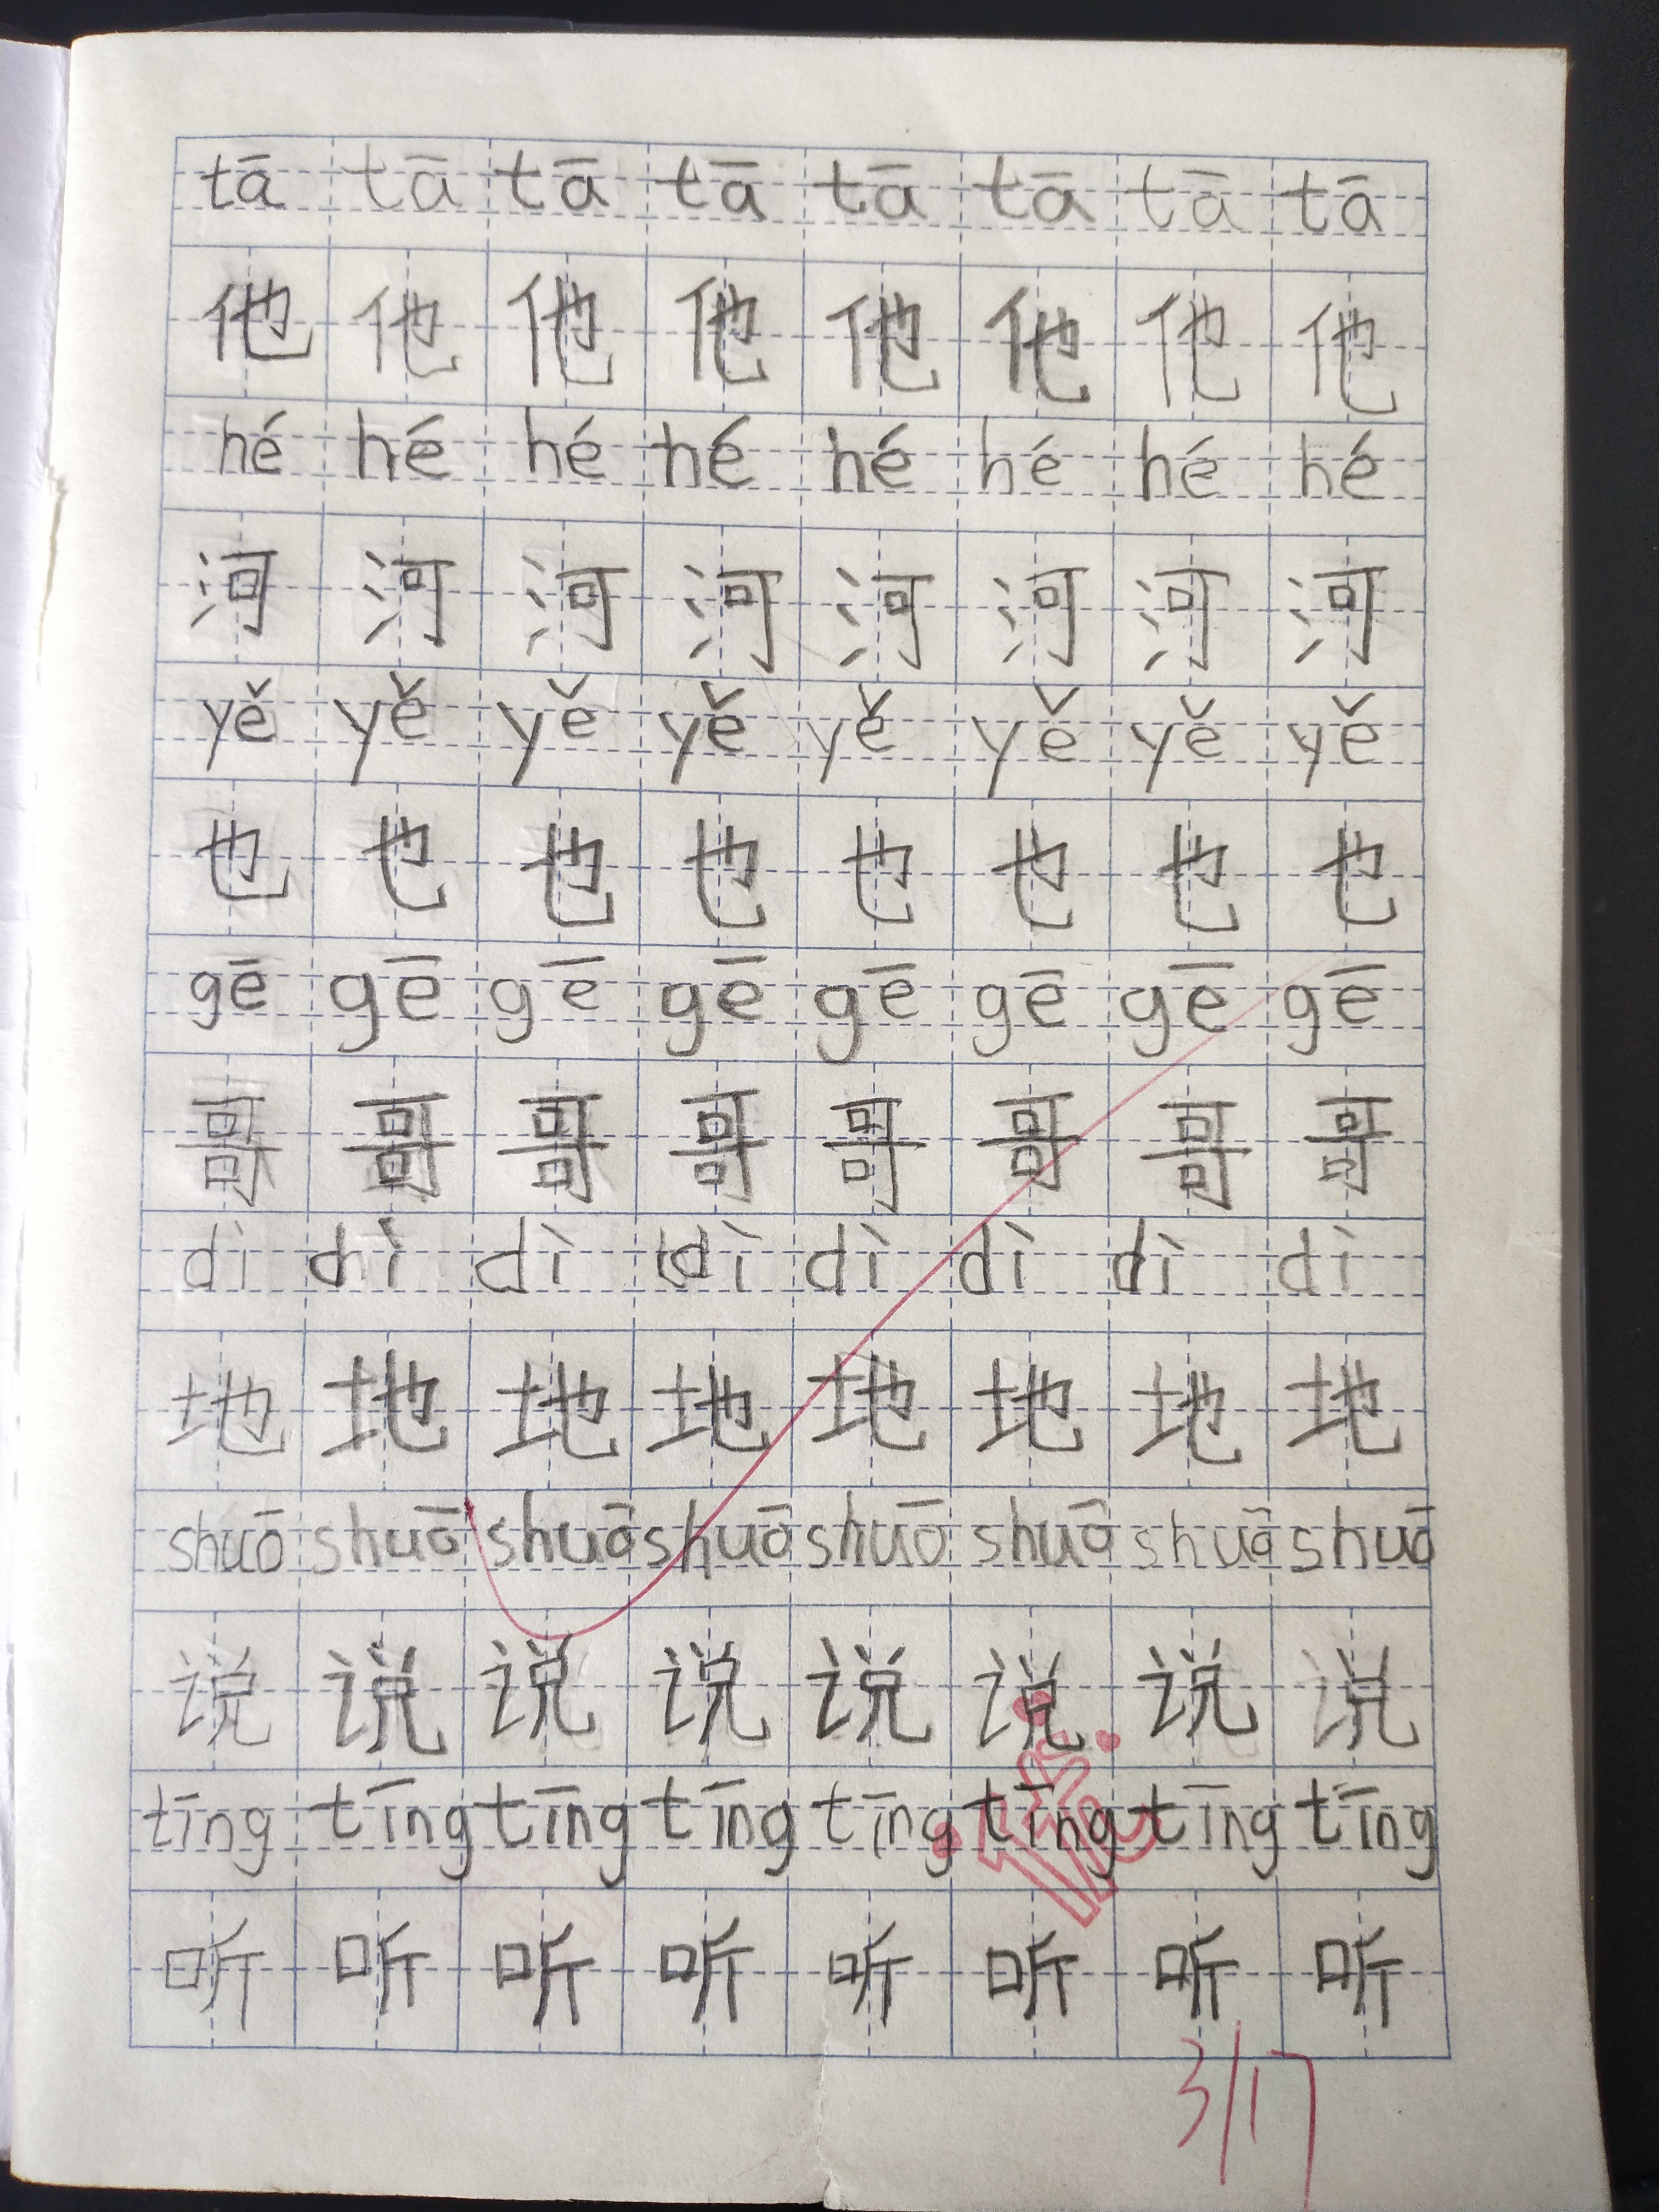 tā tā tā tā tā tā tā tā
他 他 他 他 他 他 他 他
hé hé hé hé hé hé hé hé
河 河 河 河 河 河 河 河
yě yě yě yě yě yě yě yě
也 也 也 也 也 也 也 也
gē gē gē gē gē gē gē gē
哥 哥 哥 哥 哥 哥 哥 哥
dì dì dì dì dì dì dì dì
地 地 地 地 地 地 地 地
shuō shuō shuō shuō shuō shuō shuō shuō
说 说 说 说 说 说 说 说
tīng tīng tīng tīng tīng tīng tīng tīng
听 听 听 听 听 听 听 听
3/17